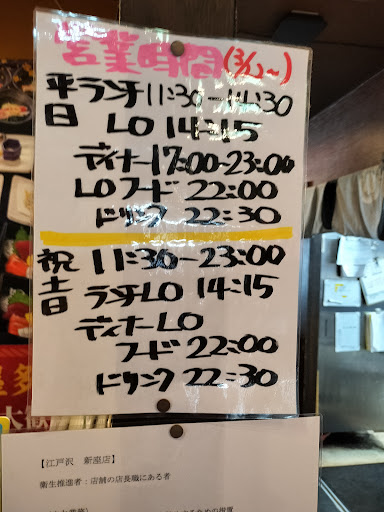 営業時間(3/12~)
平日 ランチ 11:30-14:30
LO 14:15
ディナー17:00-23:00
LO フード 22:00
ドリンク 22:30
祝土日 11:30-23:00
ランチLO 14:15
ディナーLO
フード 22:00
ドリンク 22:30
【江戸沢 新座店】
衛生推進者:店舗の店長職にある者